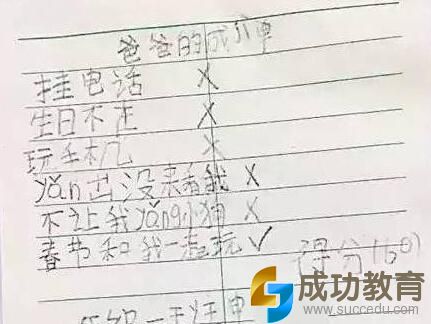 爸爸的成八单
挂电话 X
生日不在 X
玩手机 X
yǎn出没来看我 X
不让我yǎng小狗 X
春节和我一起玩 ✓
得分(60)
成功教育
www.succedu.com